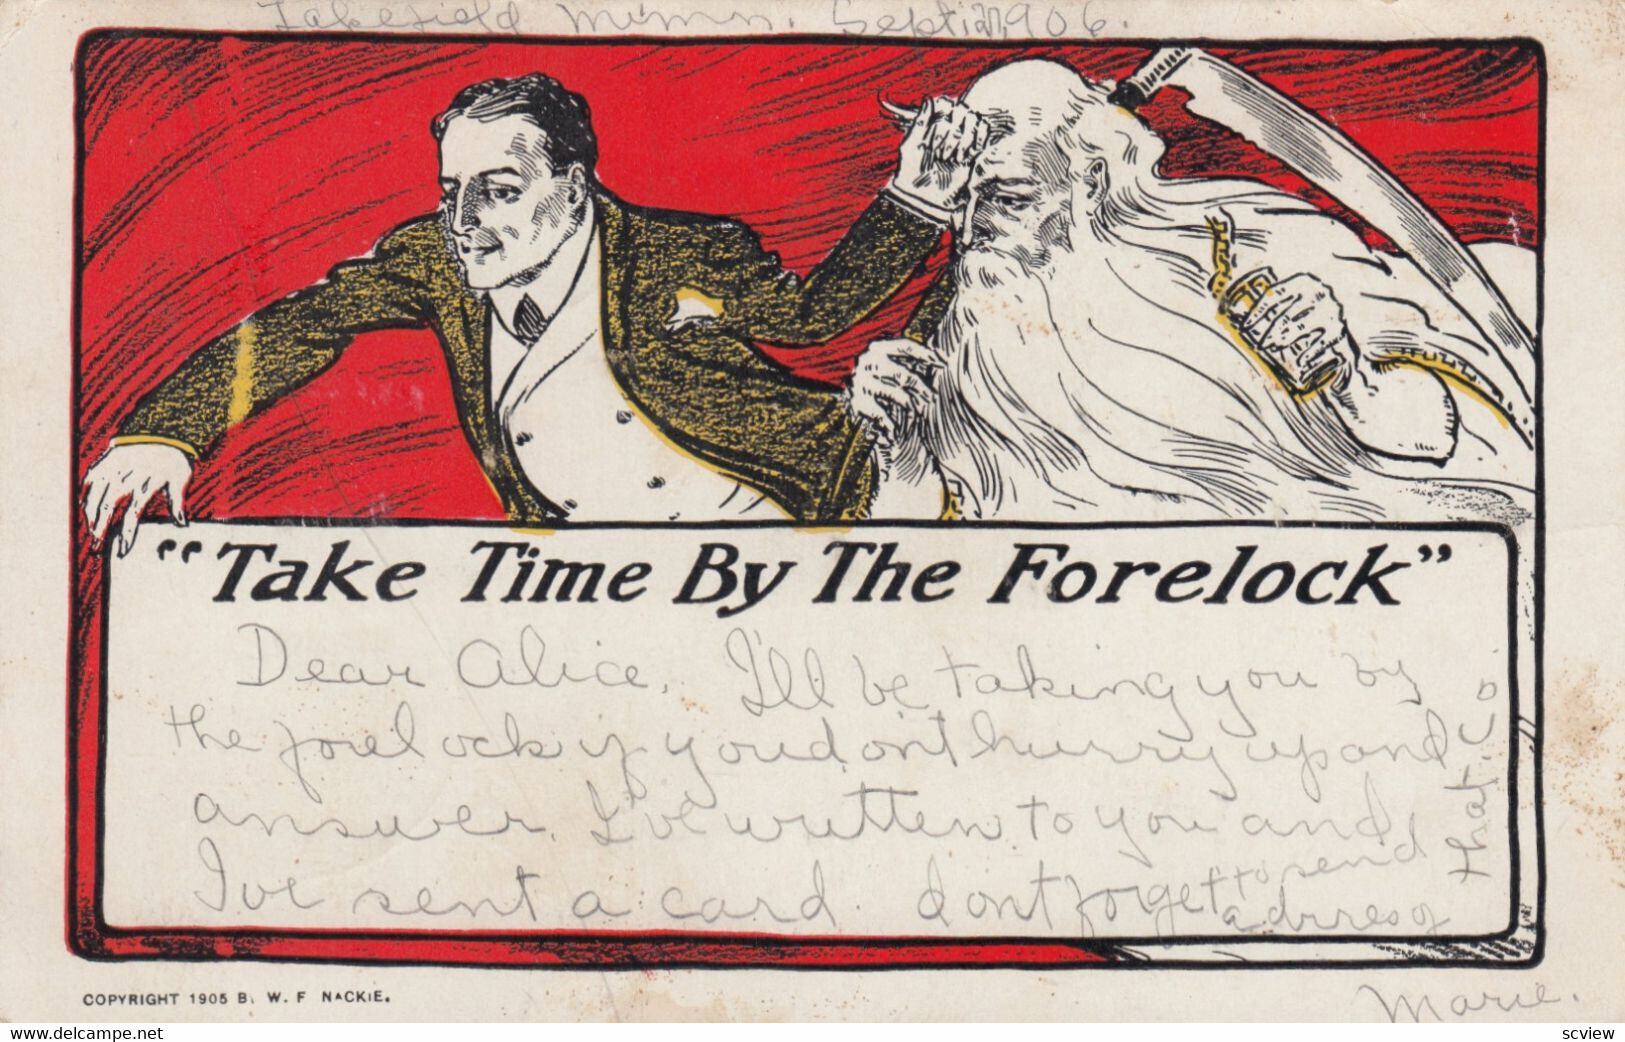 Lakefield Minn. Sept. 1906.
"Take Time By The Forelock"
Dear Alice, I'll be taking you by
the forelock if you dont hurry up and
answer. I've written to you and
I've sent a card. dont forget to send
adrres of
that. Co.
Marie.
COPYRIGHT 1905 B. W. F NACKIE.
scview